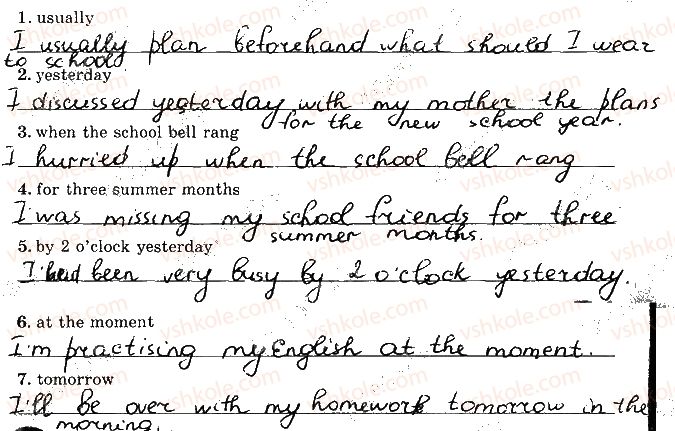 1. usually
I usually plan beforehand what should I wear
to school
2. yesterday
I discussed yesterday with my mother the plans
for the new school year.
3. when the school bell rang
I hurried up when the school bell rang
4. for three summer months
I was missing my school friends for three
summer months.
5. by 2 o'clock yesterday
I had been very busy by 2 o'clock yesterday.
6. at the moment
I'm practising my English at the moment.
7. tomorrow
I'll be over with my homework tomorrow in the
morning.
vshkole.com